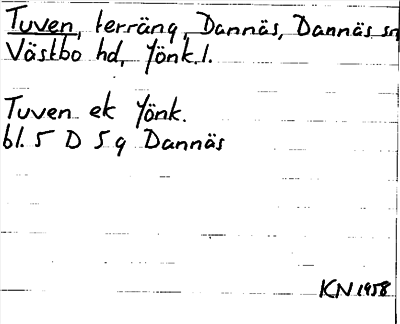 Tuven, terräng, Dannäs, Dannäs sn
Västbo hd, Jönk.l.
Tuven ek Jönk.
bl. 5 D 5 g Dannäs
KN 1958